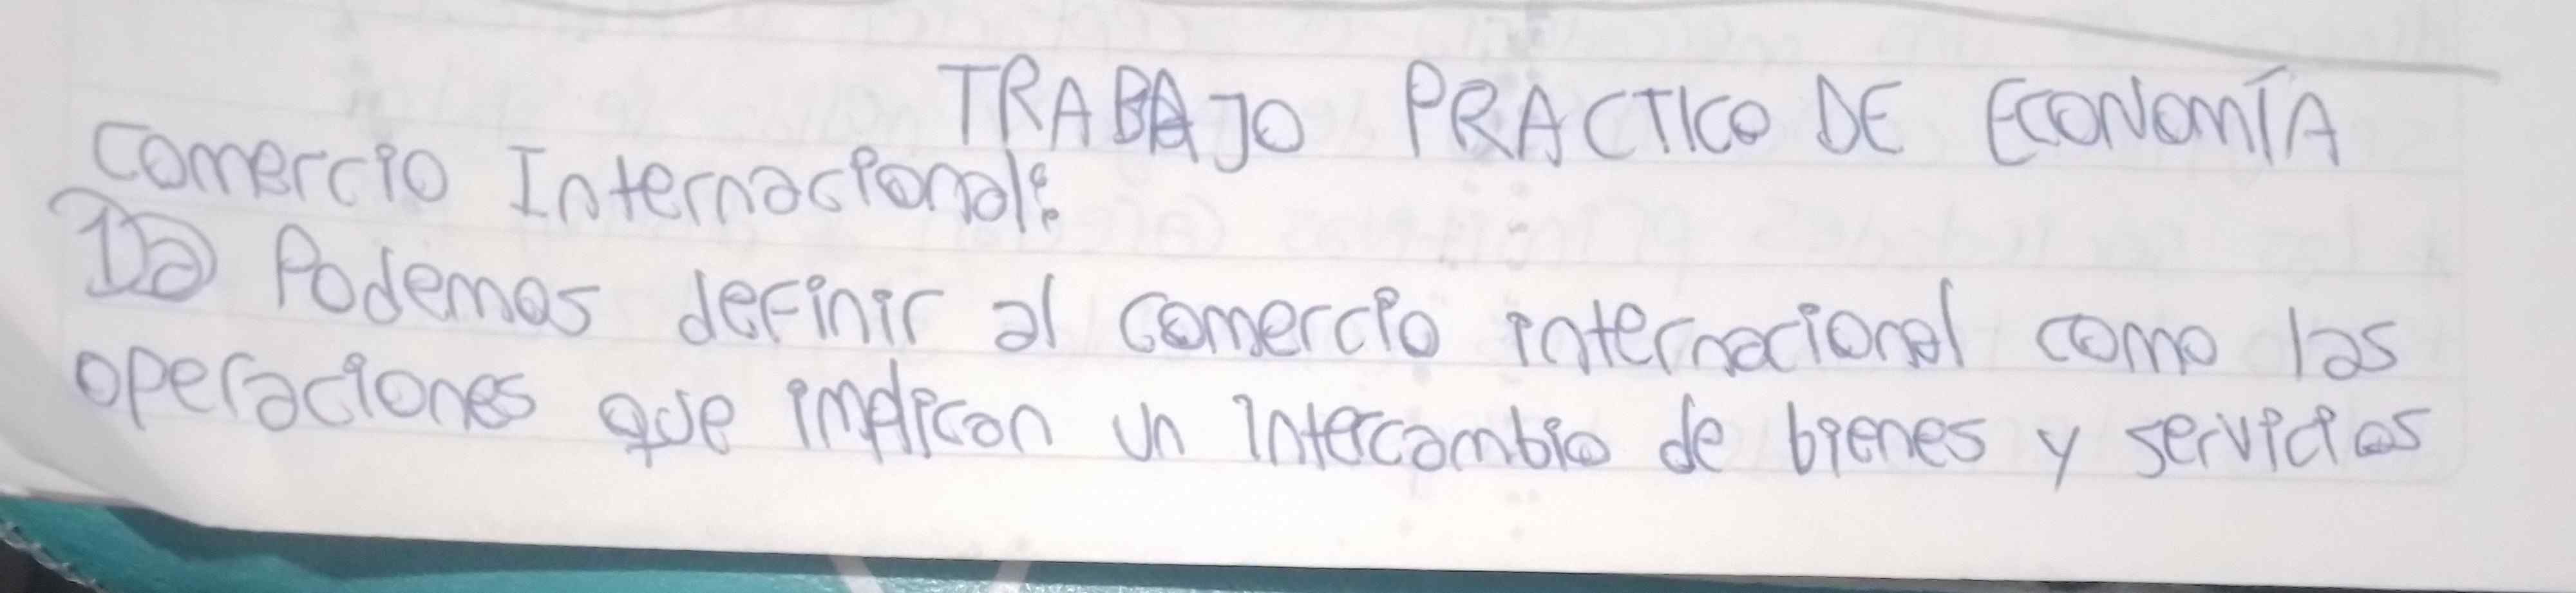 TRABAJO PRACTICO DE ECONOMÍA
Comercio Internacional:
1) a) Podemos definir al comercio internacional como las
operaciones que implican un intercambio de bienes y servicios